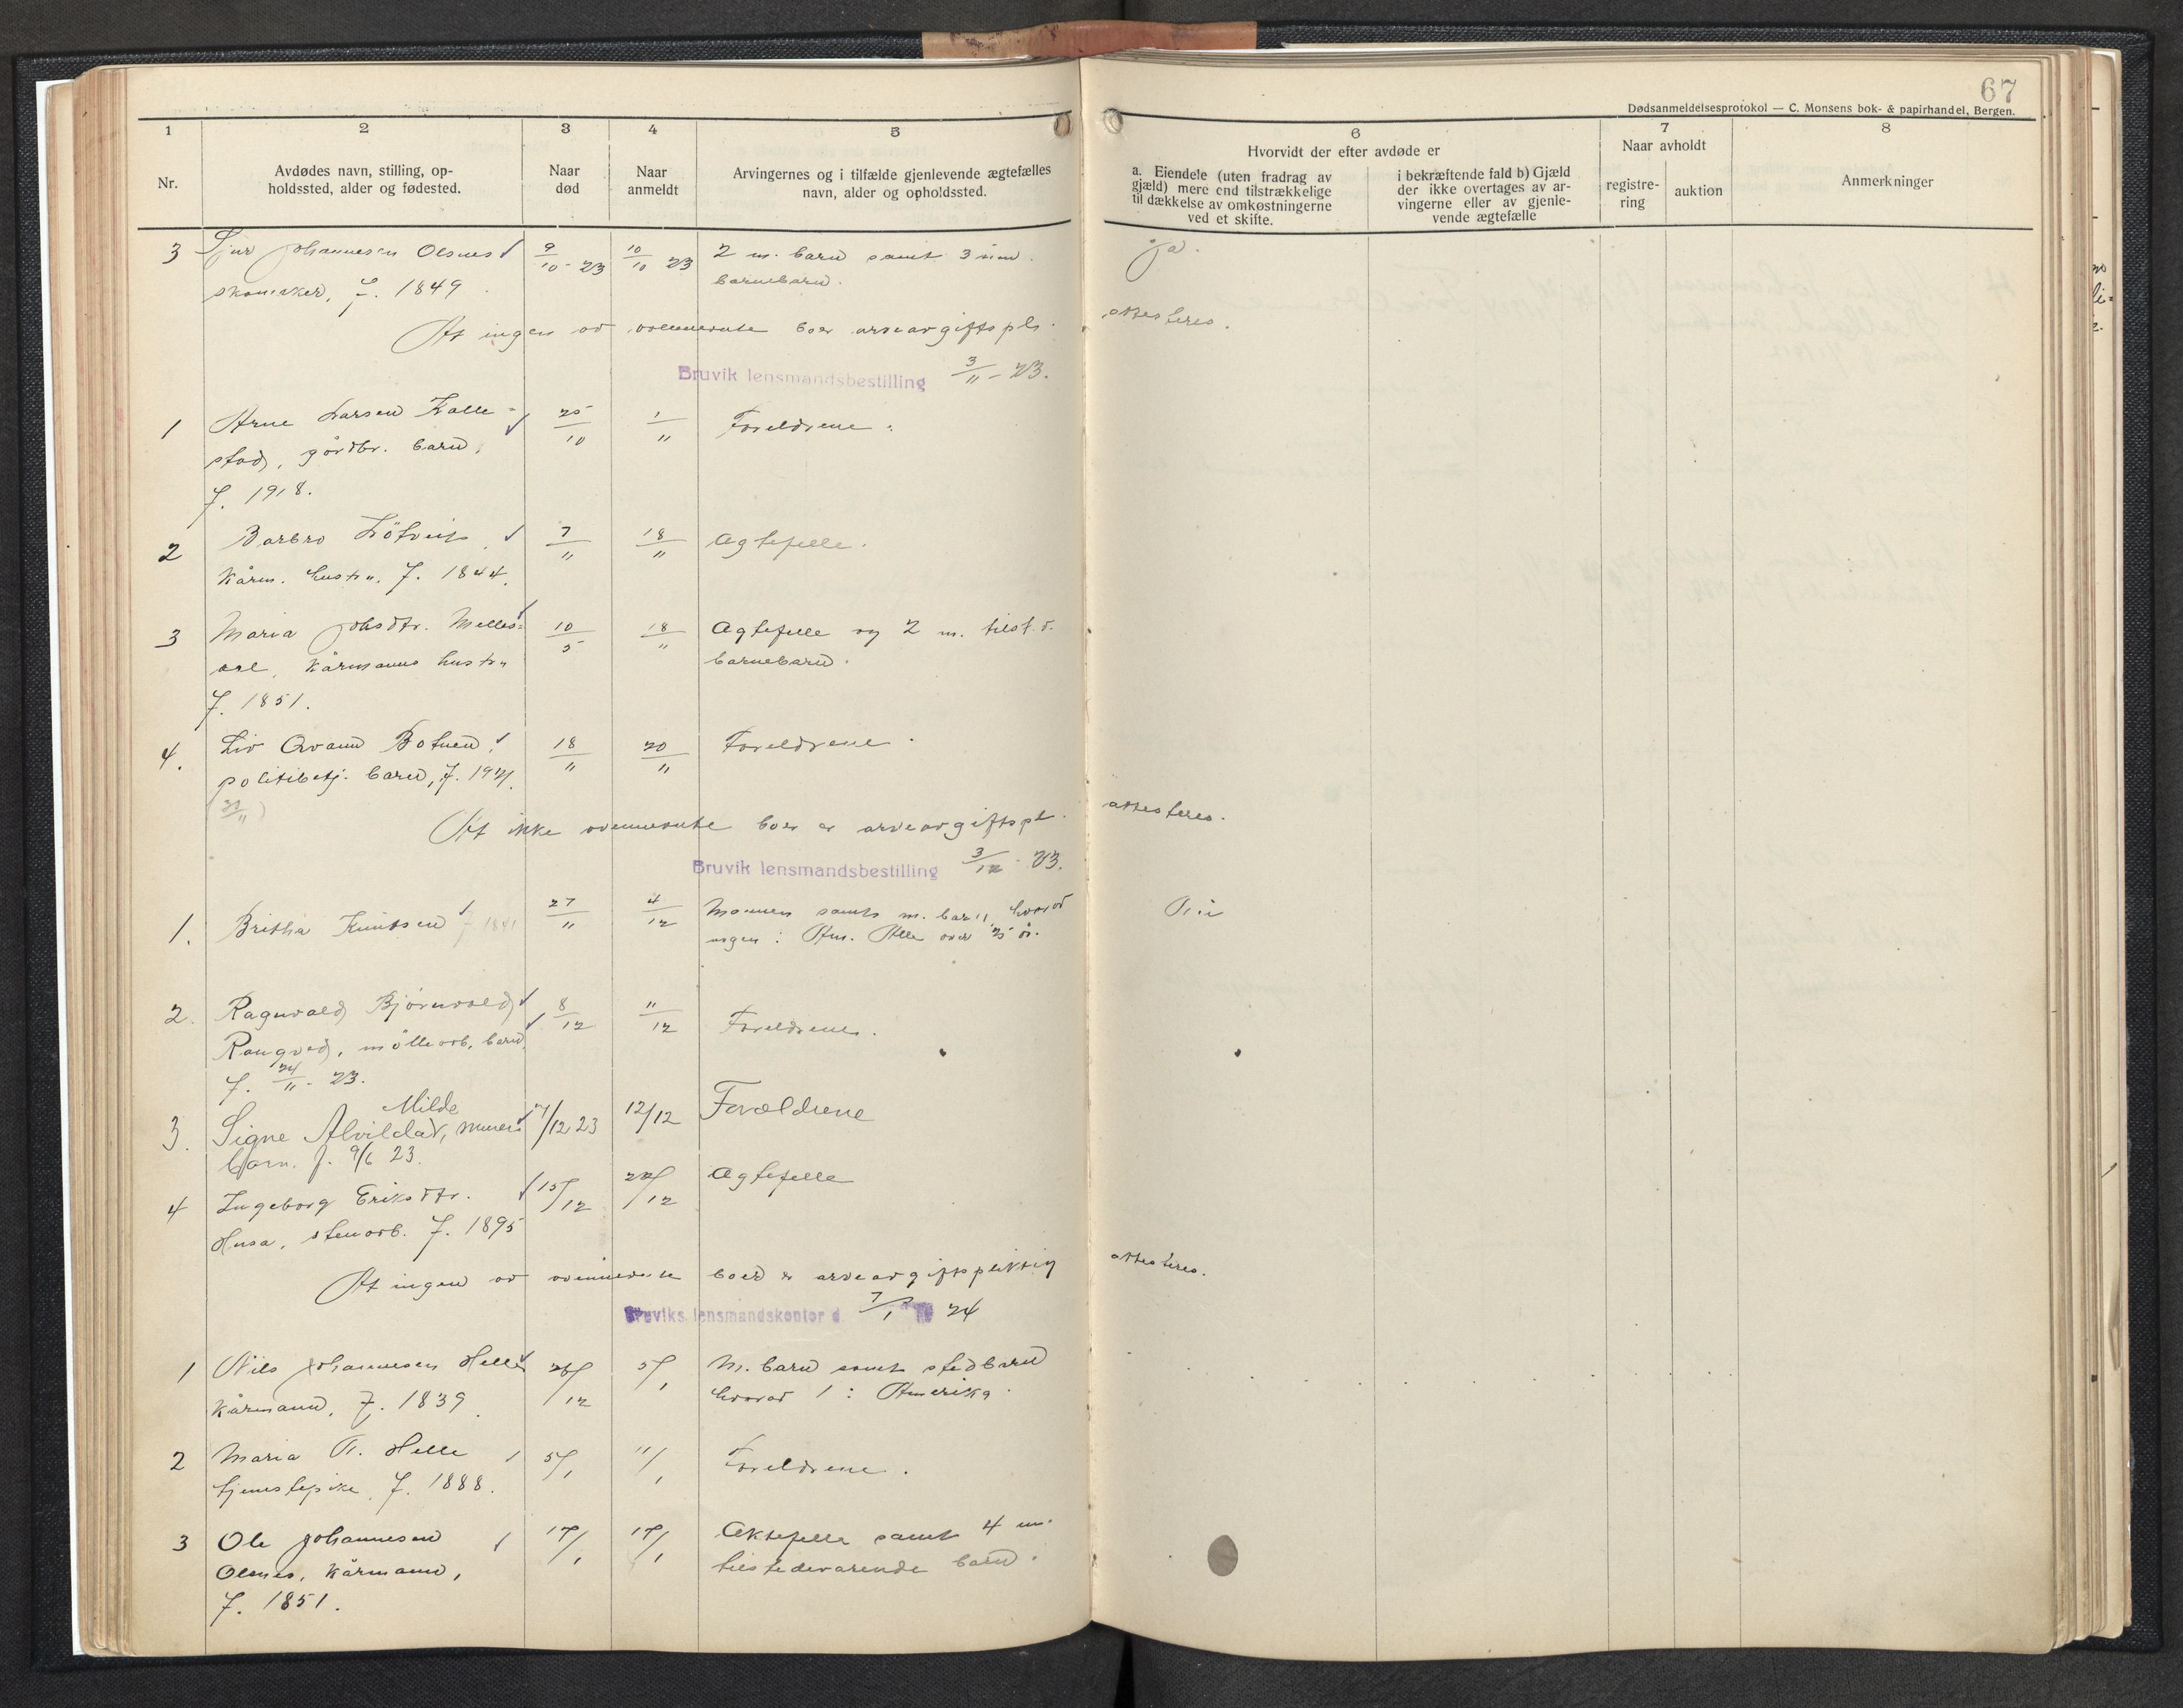 67
Dødsanmeldelsesprotokol — C. Monsens bok- & papirhandel, Bergen.
1 2 3 4 5
Nr.
Avdødes navn, stilling, op-
holdssted, alder og fødested.
Naar
død
Naar
anmeldt
Arvingernes og i tilfælde gjenlevende ægtefælles
navn, alder og opholdssted.
6 7 8
Hvorvidt der efter avdøde er
a. Eiendele (uten fradrag av
gjæld) mere end tilstrækkelige
til dækkelse av omkostningerne
ved et skifte.
i bekræftende fald b) Gjæld
der ikke overtages av ar-
vingerne eller av gjenle-
vende ægtefælle
Naar avholdt
registre-
ring
auktion
Anmerkninger
3 Sjur Johannesen Olsnes 9/10 - 23 10/10 23 2 m. barn samt 3 um. ja.
skomaker, f. 1849 barnebarn.
At ingen av ovennevnte boer arveavgiftspl. attesteres.
Bruvik lensmandsbestilling 3/11 - 23.
1 Arne Larsen Kalle- 25/10 1/11 Foreldrene.
stad, gårdbr. barn,
f. 1918.
2 Barbro 7/11 18/11 Agtefelle.
kårm. hustru. f. 1844.
3 Maria Johsdtr. Melles- 10/5 18/11 Agtefelle og 2 m. tilst.
kårmanns hustru barnebarn.
f. 1851.
4. Liv Botnen, 18/11 20/11 Foreldrene.
politibetj. barn, f. 1921.
At ikke ovennevnte boer er arveavgiftspl. attesteres.
Bruvik lensmandsbestilling 3/12 - 23.
1. Britha Knutsen f 1841 27/11 4/12 Mannen samt m. barn hvorav
nogen i Am. Alle over 25 år.
2. Ragnvald Bjørnvald 8/12 11/12 Foreldrene.
möllearb. barn,
f. 24/11 - 23.
Milde
3. Signe Alvilda, murers 12 23 12/12 Forældrene
barn. f. 9/6 23.
4 Ingeborg Eriksdtr. 15/12 22/12 Agtefelle
Husa, stenarb. f. 1895
At ingen av ovennevnte boer er arveavgiftspliktig attesteres.
Bruviks lensmandskontor d. 7/1 24
1 Nils Johannesen Helle 26/12 5/1 M. barn samt stedbarn
kårmann, f. 1839 hvorav 1 i Amerika.
2 Maria A. Helle 5/1 11/1 Foreldrene.
tjenestepike, f. 1888.
3 Ole Johannesen 17/1 17/1 Aktefelle samt 4 m.
Olsnes, kårmann, tilstedeværende barn.
f. 1851.